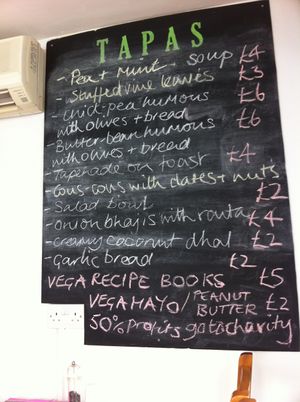 TAPAS
- Pea + Mint soup £4
- Stuffed vine leaves £3
- Chick-pea humous £6
with olives + bread
- Butter-bean humous £6
with olives + bread
- Tapenade on toast £4
- Cous-cous with dates + nuts
- Salad bowl £2
- onion bhajis with raita £4
- creamy coconut dhal £2
- Garlic bread £2
VEGA RECIPE BOOKS £5
VEGA MAYO / PEANUT BUTTER £2
50% Profits go to charity